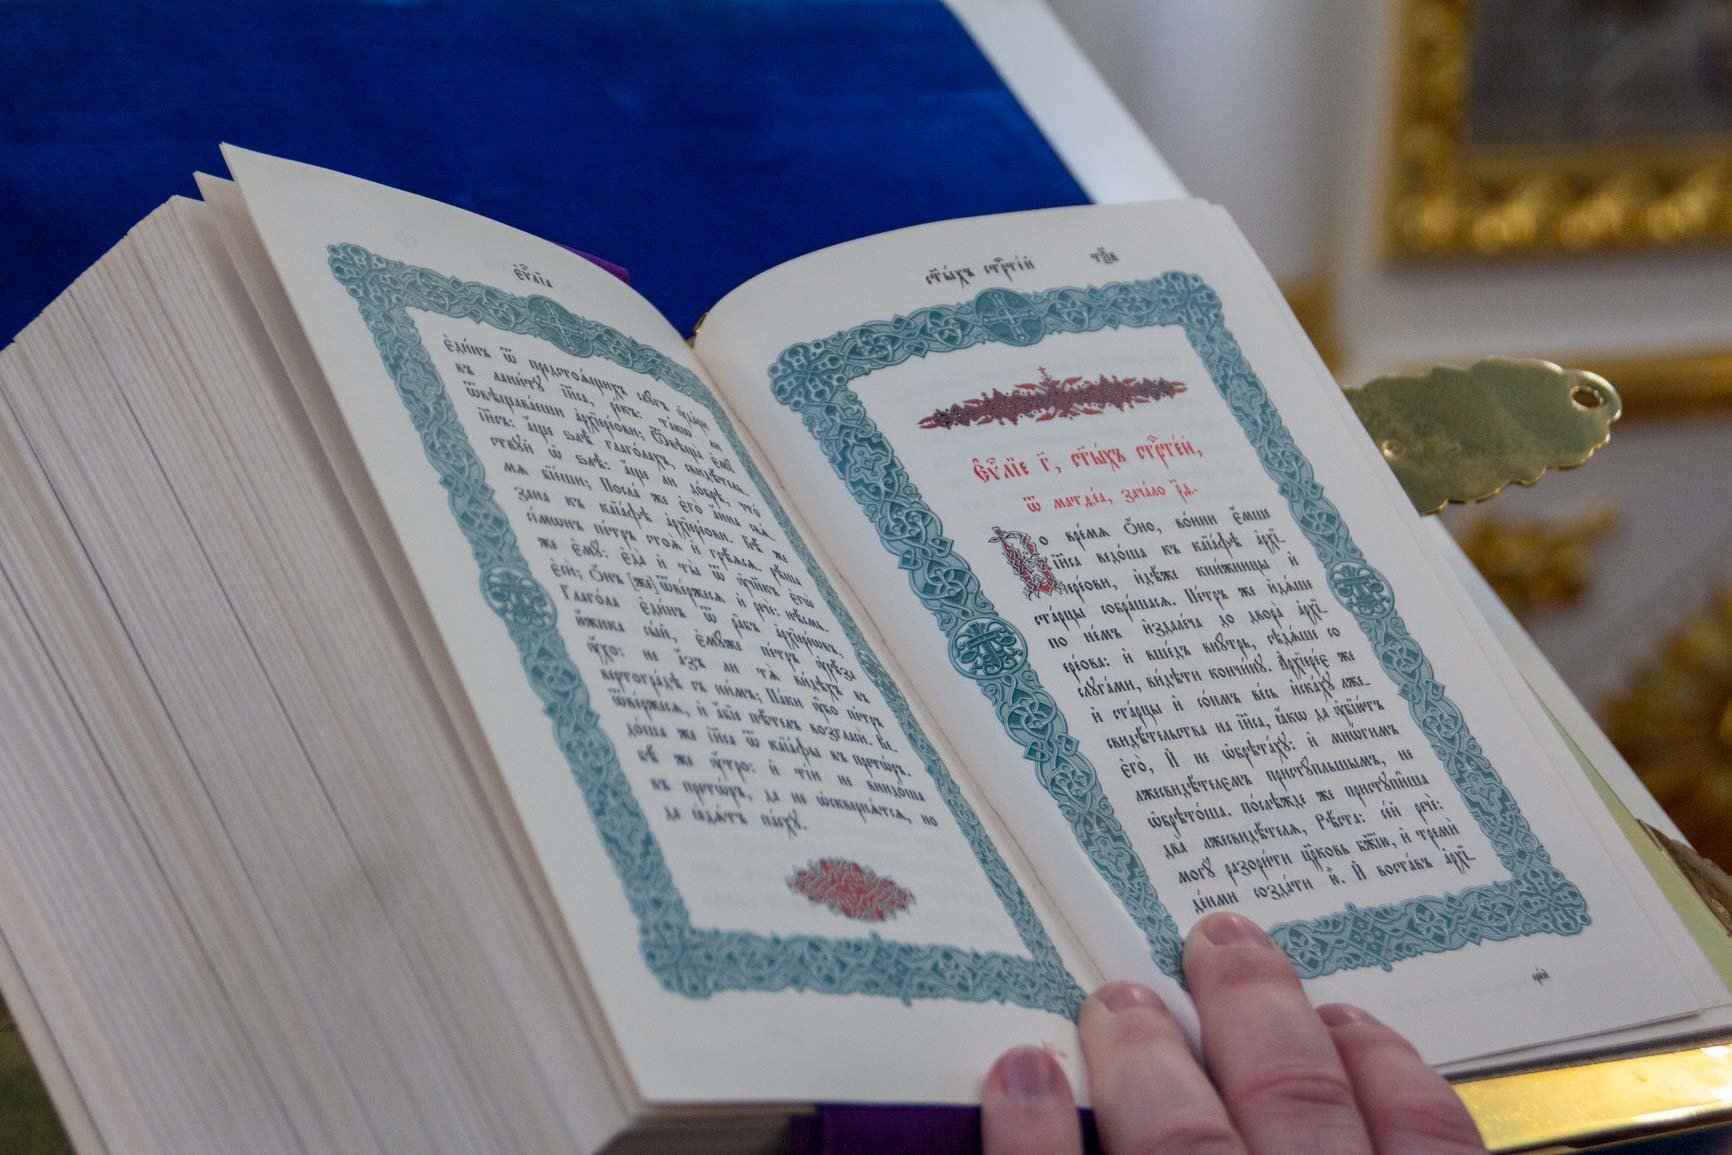 є҆ѵⷢ҇лїа
є҆ди́нъ ѿ предстоѧ́щихъ слꙋ́гъ ᲂу҆да́ри
въ лани́тꙋ і҆и҃са, ре́къ: та́кѡ ли
ѿвѣщава́еши а҆рхїере́ови; ѿвѣща̀ є҆мꙋ̀
і҆и҃съ: а҆́ще ѕлѣ̀ глаго́лахъ, свидѣ́тель-
ствꙋй ѡ҆ ѕлѣ̀: а҆́ще ли до́брѣ, что̀
мѧ̀ бїе́ши; Посла́ же є҆го̀ а҆́нна свѧ́-
зана къ каїа́фѣ а҆рхїере́ови. Бѣ́ же
сі́мѡнъ пе́тръ стоѧ̀ и҆ грѣ́ѧсѧ. рѣ́ша
же є҆мꙋ̀: є҆да̀ и҆ ты̀ ѿ ᲂу҆чн҃къ є҆гѡ̀
є҆сѝ; Ѻ҆́нъ [же] ѿве́ржесѧ и҆ речѐ: нѣ́смь.
Глаго́ла є҆ди́нъ ѿ ра̑бъ а҆рхїере́овыхъ,
ю҆́жика сы́й, є҆мꙋ́же пе́тръ ᲂу҆рѣ́за
ᲂу҆́хо: не а҆́зъ ли тѧ̀ ви́дѣхъ въ
вертогра́дѣ съ ни́мъ; Па́ки ᲂу҆̀бо пе́тръ
ѿве́ржесѧ, и҆ а҆́бїе пѣ́тель возгласѝ. Ве-
до́ша же і҆и҃са ѿ каїа́фы въ прето́ръ.
бѣ́ же ᲂу҆́тро: и҆ ті́и не внидо́ша
въ прето́ръ, да не ѡ҆сквернѧ́тсѧ, но
да ꙗ҆дѧ́тъ па́схꙋ.
ст҃ы́хъ стрⷭ҇те́й
Є҆ѵⷢ҇лїе г҃, ст҃ы́хъ стрⷭ҇те́й,
ѿ матѳе́а, зача́ло р҃д.
Во вре́мѧ ѻ҆́но, во́ини є҆́мше
і҆и҃са ведо́ша къ каїа́фѣ а҆рхї-
ере́ови, и҆дѣ́же кни́жницы и҆
ста́рцы собра́шасѧ. Пе́тръ же и҆дѧ́ше
по не́мъ и҆здале́ча до двора̀ а҆рхї-
ере́ова: и҆ вше́дъ внꙋ́трь, сѣдѧ́ше со
слꙋга́ми, ви́дѣти кончи́нꙋ. А҆рхїере́є же
и҆ ста́рцы и҆ со́нмъ ве́сь и҆ска́хꙋ лже-
свидѣ́тельства на і҆и҃са, ꙗ҆́кѡ да ᲂу҆бїю́тъ
є҆го̀, И҆ не ѡ҆брѣта́хꙋ: и҆ мнѡ́гимъ
лжесвидѣ́телемъ пристꙋ́пльшымъ, не
ѡ҆брѣто́ша. послѣ́жде же пристꙋпи̑вша
два̀ лжесвидѣ́телѧ, Рѣ́ста: се́й речѐ:
могꙋ̀ разори́ти цр҃ковь бж҃їю, и҆ тремѝ
де́ньми созда́ти ю҆̀. И҆ воста́въ а҆рхї-